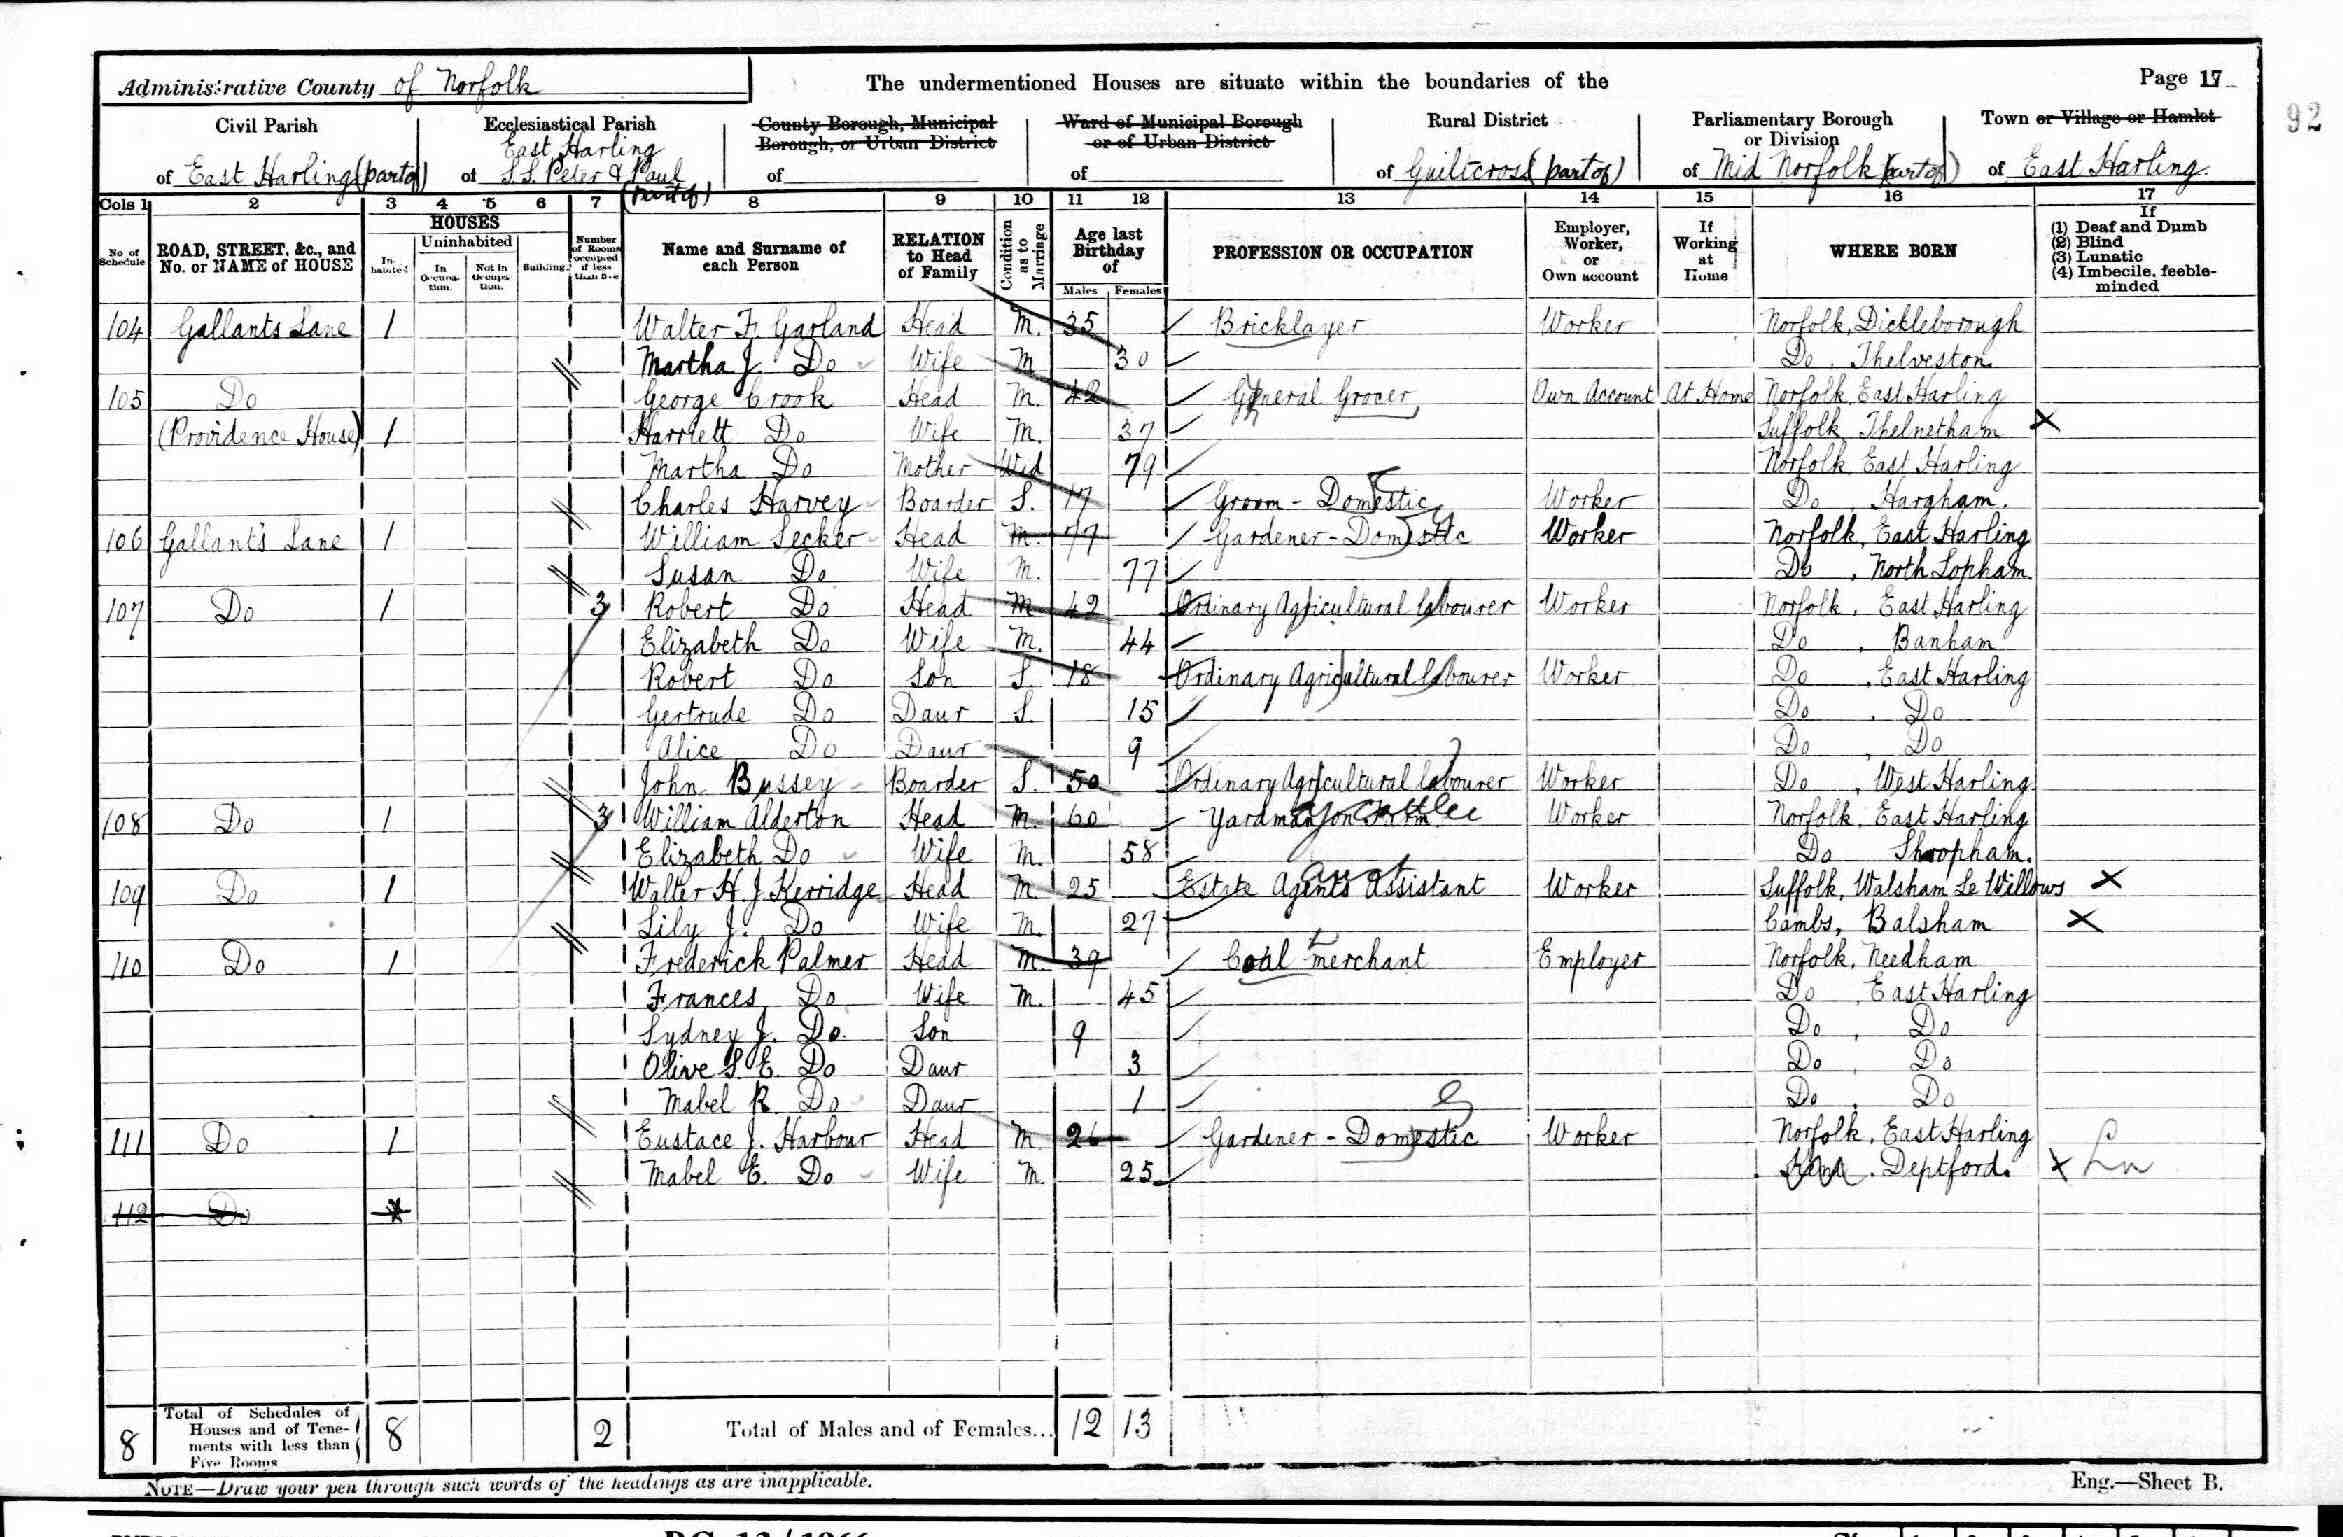 Administrative County of Norfolk
The undermentioned Houses are situate within the boundaries of the
Page 17
92
Civil Parish of East Harling (part of)
Ecclesiastical Parish of East Harling S.S. Peter & Paul (part of)
County Borough, Municipal Borough, or Urban District of
Ward of Municipal Borough or of Urban District of
Rural District of Guiltcross (part of)
Parliamentary Borough or Division of Mid Norfolk (part of)
Town or Village or Hamlet of East Harling
Cols 1 2 3 4 5 6 7 8 9 10 11 12 13 14 15 16 17
No of Schedule
ROAD, STREET, &c., and No. or NAME of HOUSE
HOUSES
Inhabited
Uninhabited
In Occupation.
Not in Occupation.
Building.
Number of Rooms occupied if less than five
Name and Surname of each Person
RELATION to Head of Family
Condition as to Marriage
Age last Birthday of
Males Females
PROFESSION OR OCCUPATION
Employer, Worker, or Own account
If Working at Home
WHERE BORN
If
(1) Deaf and Dumb
(2) Blind
(3) Lunatic
(4) Imbecile, feeble-minded
104 Gallants Lane 1 Walter F. Garland Head M. 35 Bricklayer Worker Norfolk, Dickleborough
Martha J. Do Wife M 30 Do . Thelveston
105 Do George Crook Head M. 42 General Grocer Own Account At Home Norfolk, East Harling
(Providence House) 1 Harriett Do Wife M. 37 Suffolk, Thelnetham X
Martha Do Mother Wid 79 Norfolk, East Harling
Charles Harvey Boarder S. 17 Groom - Domestic Worker Do . Hargham.
106 Gallants Lane 1 William Secker Head M. 77 Gardener - Domestic Worker Norfolk, East Harling
Susan Do Wife M. 77 Do . North Lopham
107 Do 1 3 Robert Do Head M 42 Ordinary Agricultural labourer Worker Norfolk, East Harling
Elizabeth Do Wife M. 44 Do . Banham
Robert Do Son S 18 Ordinary Agricultural labourer Worker Do . East Harling
Gertrude Do Daur S. 15 Do . Do
Alice Do Daur 9 Do . Do
John Bussey Boarder S. 50 Ordinary Agricultural labourer Worker Do . West Harling
108 Do 1 3 William Alderton Head M. 60 Yardman on Farm cattle Worker Norfolk, East Harling
Elizabeth Do Wife M. 58 Do Shropham.
109 Do 1 Walter H. J. Kerridge Head M. 25 Estate Agents Assistant Worker Suffolk, Walsham Le Willows X
Lily J. Do Wife M. 27 Cambs, Balsham X
110 Do 1 Frederick Palmer Head M. 39 Coal merchant Employer Norfolk, Needham
Frances Do Wife M. 45 Do . East Harling
Sydney J. Do. Son 9 Do . Do
Olive S. E. Do Daur 3 Do . Do
Mabel R. Do Daur 1 Do . Do
111 Do 1 Eustace J. Harbour Head M 26 Gardener - Domestic Worker Norfolk, East Harling
Mabel E. Do Wife M. 25 Deptford. X Ln
112 Do
8 Total of Schedules of Houses and of Tenements with less than Five Rooms 8 2 Total of Males and of Females... 12 13
NOTE—Draw your pen through such words of the headings as are inapplicable.
Eng.—Sheet B.